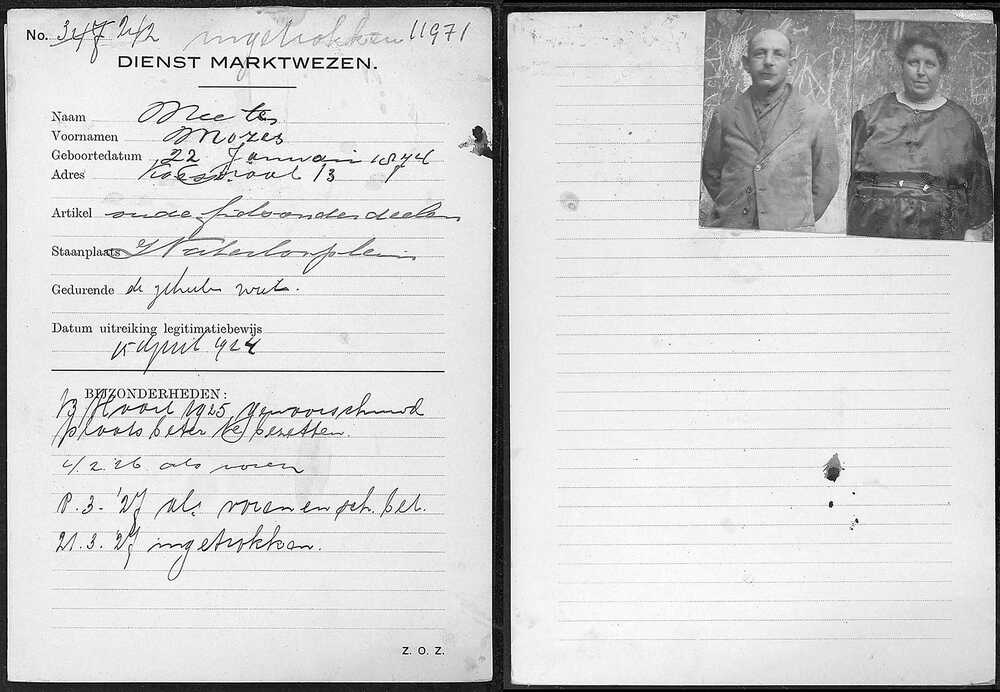 No. 347 242 ingetrokken 11971
DIENST MARKTWEZEN.
Naam Meeter
Voornamen Mozes
Geboortedatum 22 Januari 1874
Adres 13
Artikel oude fietsonderdeelen
Staanplaats Waterlooplein
Gedurende de geheele week.
Datum uitreiking legitimatiebewijs
15 April 1924
BIJZONDERHEDEN:
19 Maart 1925 gewaarschuwd
plaats beter te bezetten.
4.2.26 als voren
8.3.-'27 als voren en sch. bet.
21.3.'27 ingetrokken.
Z. O. Z.